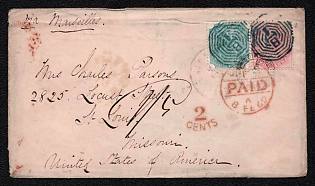 via Marseilles.
Mrs Charles Parsons
2825. Locust
St. Louis
Missouri
United States of America.
PAID
8 FE
2
CENTS